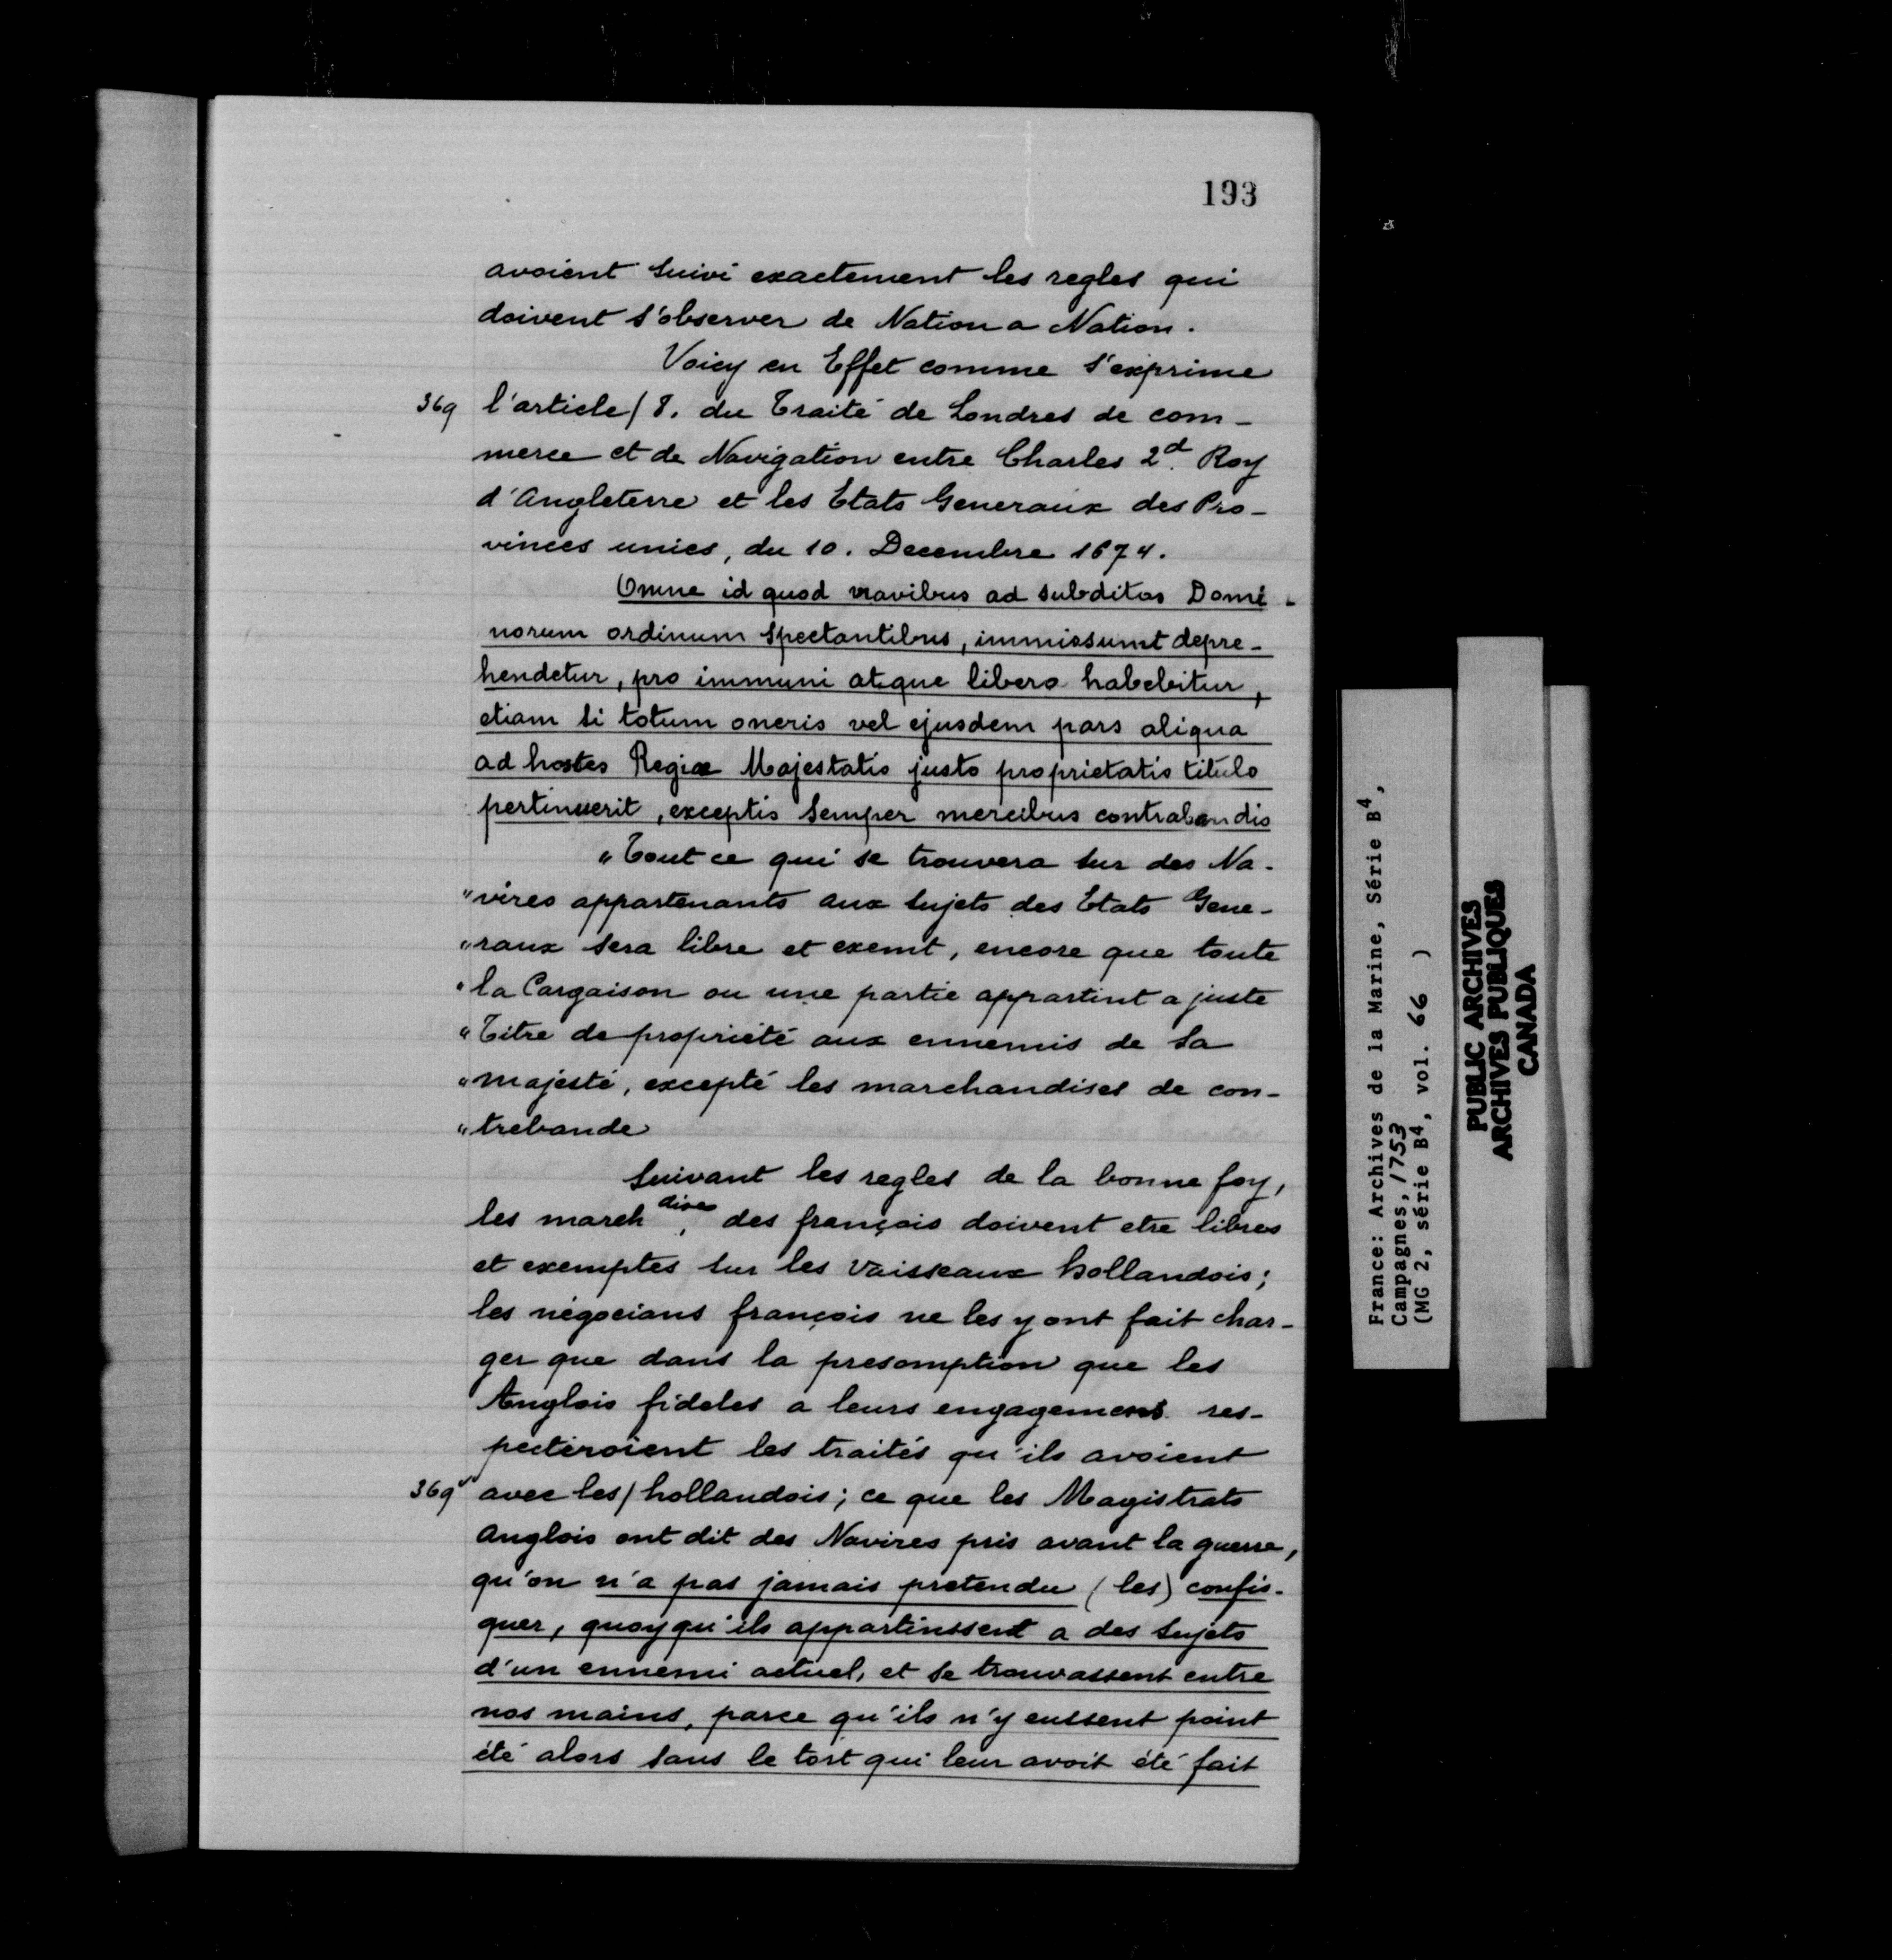 193
avoient suivi exactement les regles qui
doivent s'observer de Nation a Nation.
Voicy en Effet comme s'exprime
369 l'article/8. du Traité de Londres de com-
merce et de Navigation entre Charles 2d. Roy
d'Angleterre et les Etats Generaux des Pro-
vinces unies, du 10. Decembre 1674.
Omne id quod navibus ad subditos Domi-
norum ordinum spectantibus, immissumt depre-
hendetur, pro immuni atque libero habebitur,
etiam si totum oneris vel ejusdem pars aliqua
ad hostes Regiæ Majestatis justo proprietatis titulo
pertinuerit, exceptis semper mercibus contrabandis
"Tout ce qui se trouvera sur des Na-
"vires appartenants aux sujets des Etats Gene-
"raux sera libre et exemt, encore que toute
"la Cargaison ou une partie appartint a juste
"Titre de propriété aux ennemis de sa
"majesté, excepté les marchandises de con-
"trebande
Suivant les regles de la bonne foy,
les marchdises, des françois doivent etre libres
et exemptes sur les vaisseaux hollandois;
les négocians françois ne les y ont fait char-
ger que dans la presomption que les
Anglois fideles a leurs engagemens res-
pecteroient les traités qu'ils avoient
369v avec les/hollandois; ce que les Magistrats
anglois ont dit des Navires pris avant la guerre,
qu'on n'a pas jamais pretendu (les) confis-
quer, quoyqu'ils appartinssent a des sujets
d'un ennemi actuel, et se trouvassent entre
nos mains, parce qu'ils n'y eussent point
été alors sans le tort qui leur avoit été fait
France: Archives de la Marine, Série B4,
Campagnes, 1753
(MG 2, série B4, vol. 66 )
PUBLIC ARCHIVES
ARCHIVES PUBLIQUES
CANADA